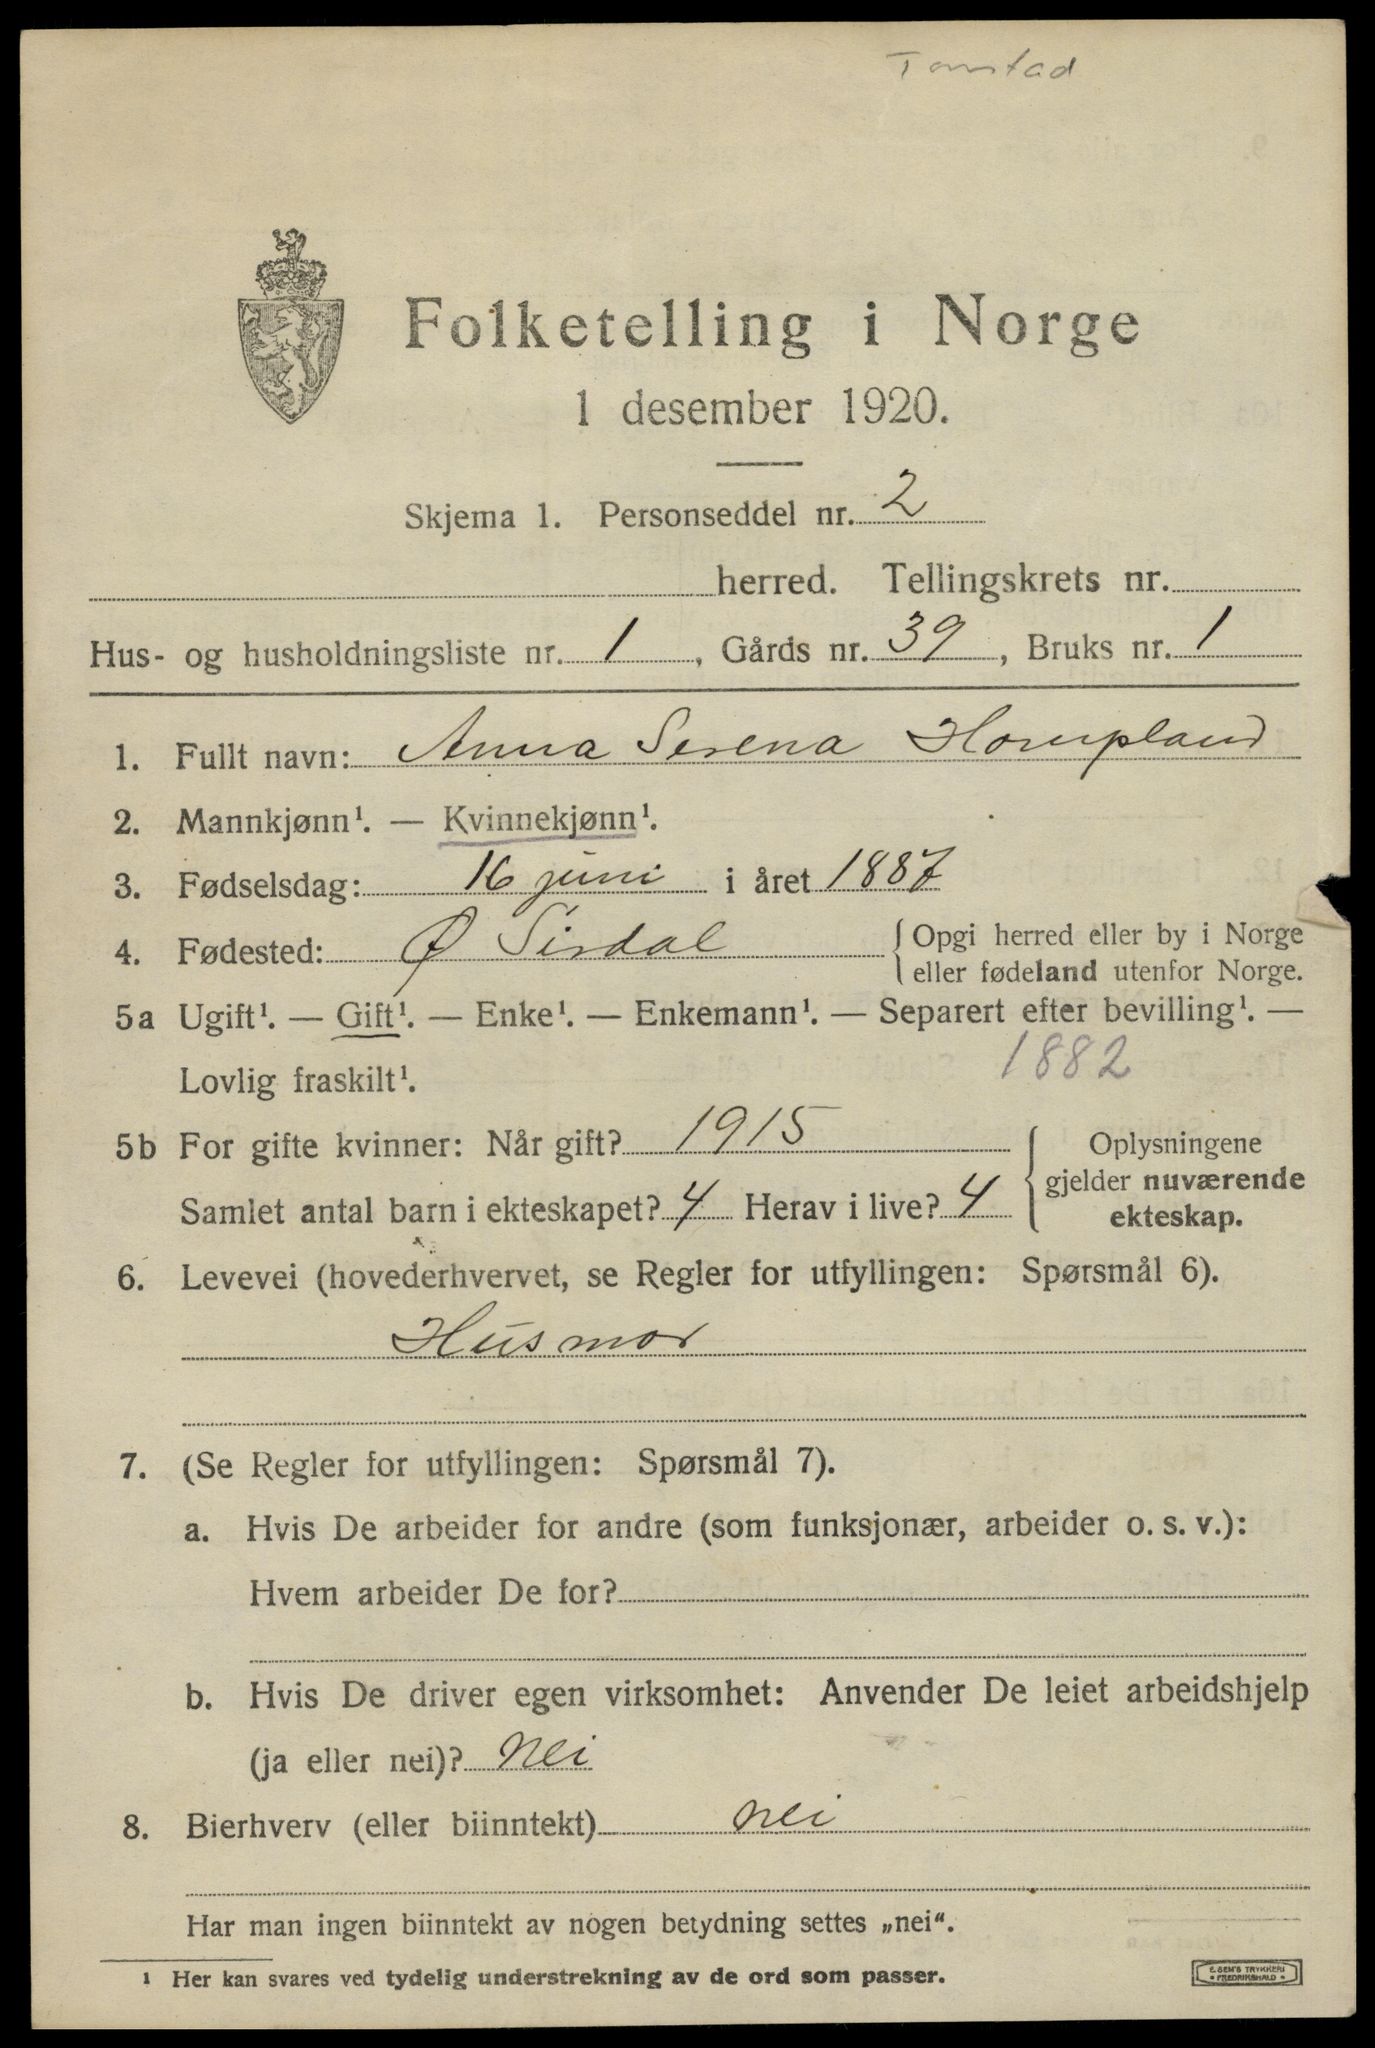 Tonstad
Folketelling i Norge
1 desember 1920.
Skjema 1. Personseddel nr. 2
herred. Tellingskrets nr.
Hus- og husholdningsliste nr. 1, Gårds nr. 39, Bruks nr. 1
1. Fullt navn: Anna Serena Hompland
2. Mannkjønn¹. — Kvinnekjønn¹.
3. Fødselsdag: 16 juni i året 1887
4. Fødested: Ø Sirdal { Opgi herred eller by i Norge
eller fødeland utenfor Norge.
5a Ugift¹. — Gift¹. — Enke¹. — Enkemann¹. — Separert efter bevilling¹. —
Lovlig fraskilt¹. 1882
5b For gifte kvinner: Når gift? 1915
Samlet antal barn i ekteskapet? 4 Herav i live? 4
{ Oplysningene
gjelder nuværende
ekteskap.
6. Levevei (hovederhvervet, se Regler for utfyllingen: Spørsmål 6).
Husmor
7. (Se Regler for utfyllingen: Spørsmål 7).
a. Hvis De arbeider for andre (som funksjonær, arbeider o. s. v.):
Hvem arbeider De for?
b. Hvis De driver egen virksomhet: Anvender De leiet arbeidshjelp
(ja eller nei)? nei
8. Bierhverv (eller biinntekt) nei
Har man ingen biinntekt av nogen betydning settes „nei“.
¹ Her kan svares ved tydelig understrekning av de ord som passer.
E. SEM'S TRYKKERI
• FREDRIKSHALD •